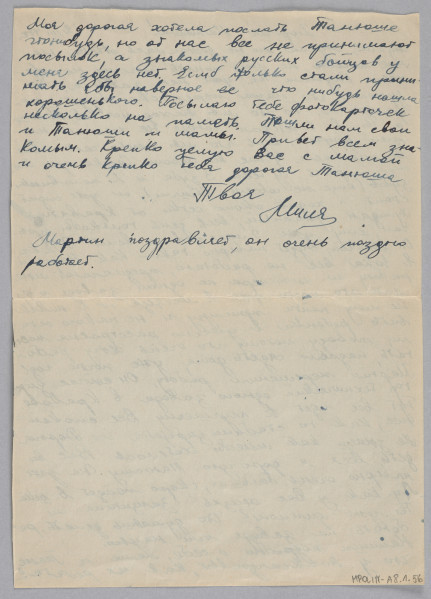 Моя дорогая хотела послать Танюше
чтонибудь, но от нас все не принимают
посылок, а знакомых русских бойцов у
меня здесь нет. Если только стали прини
мать я бы наверное ее что нибудь нашла
хорошенького. Посылаю тебе фотокарточек
несколько на память. Пошли нам свои
и Танюши и мамы. Привет всем зна-
комым. Крепко целую Вас с мамой
и очень крепко тебя дорогая Танюша
Твоя
Миля
Мартин поздравляет, он очень поздно
работает.